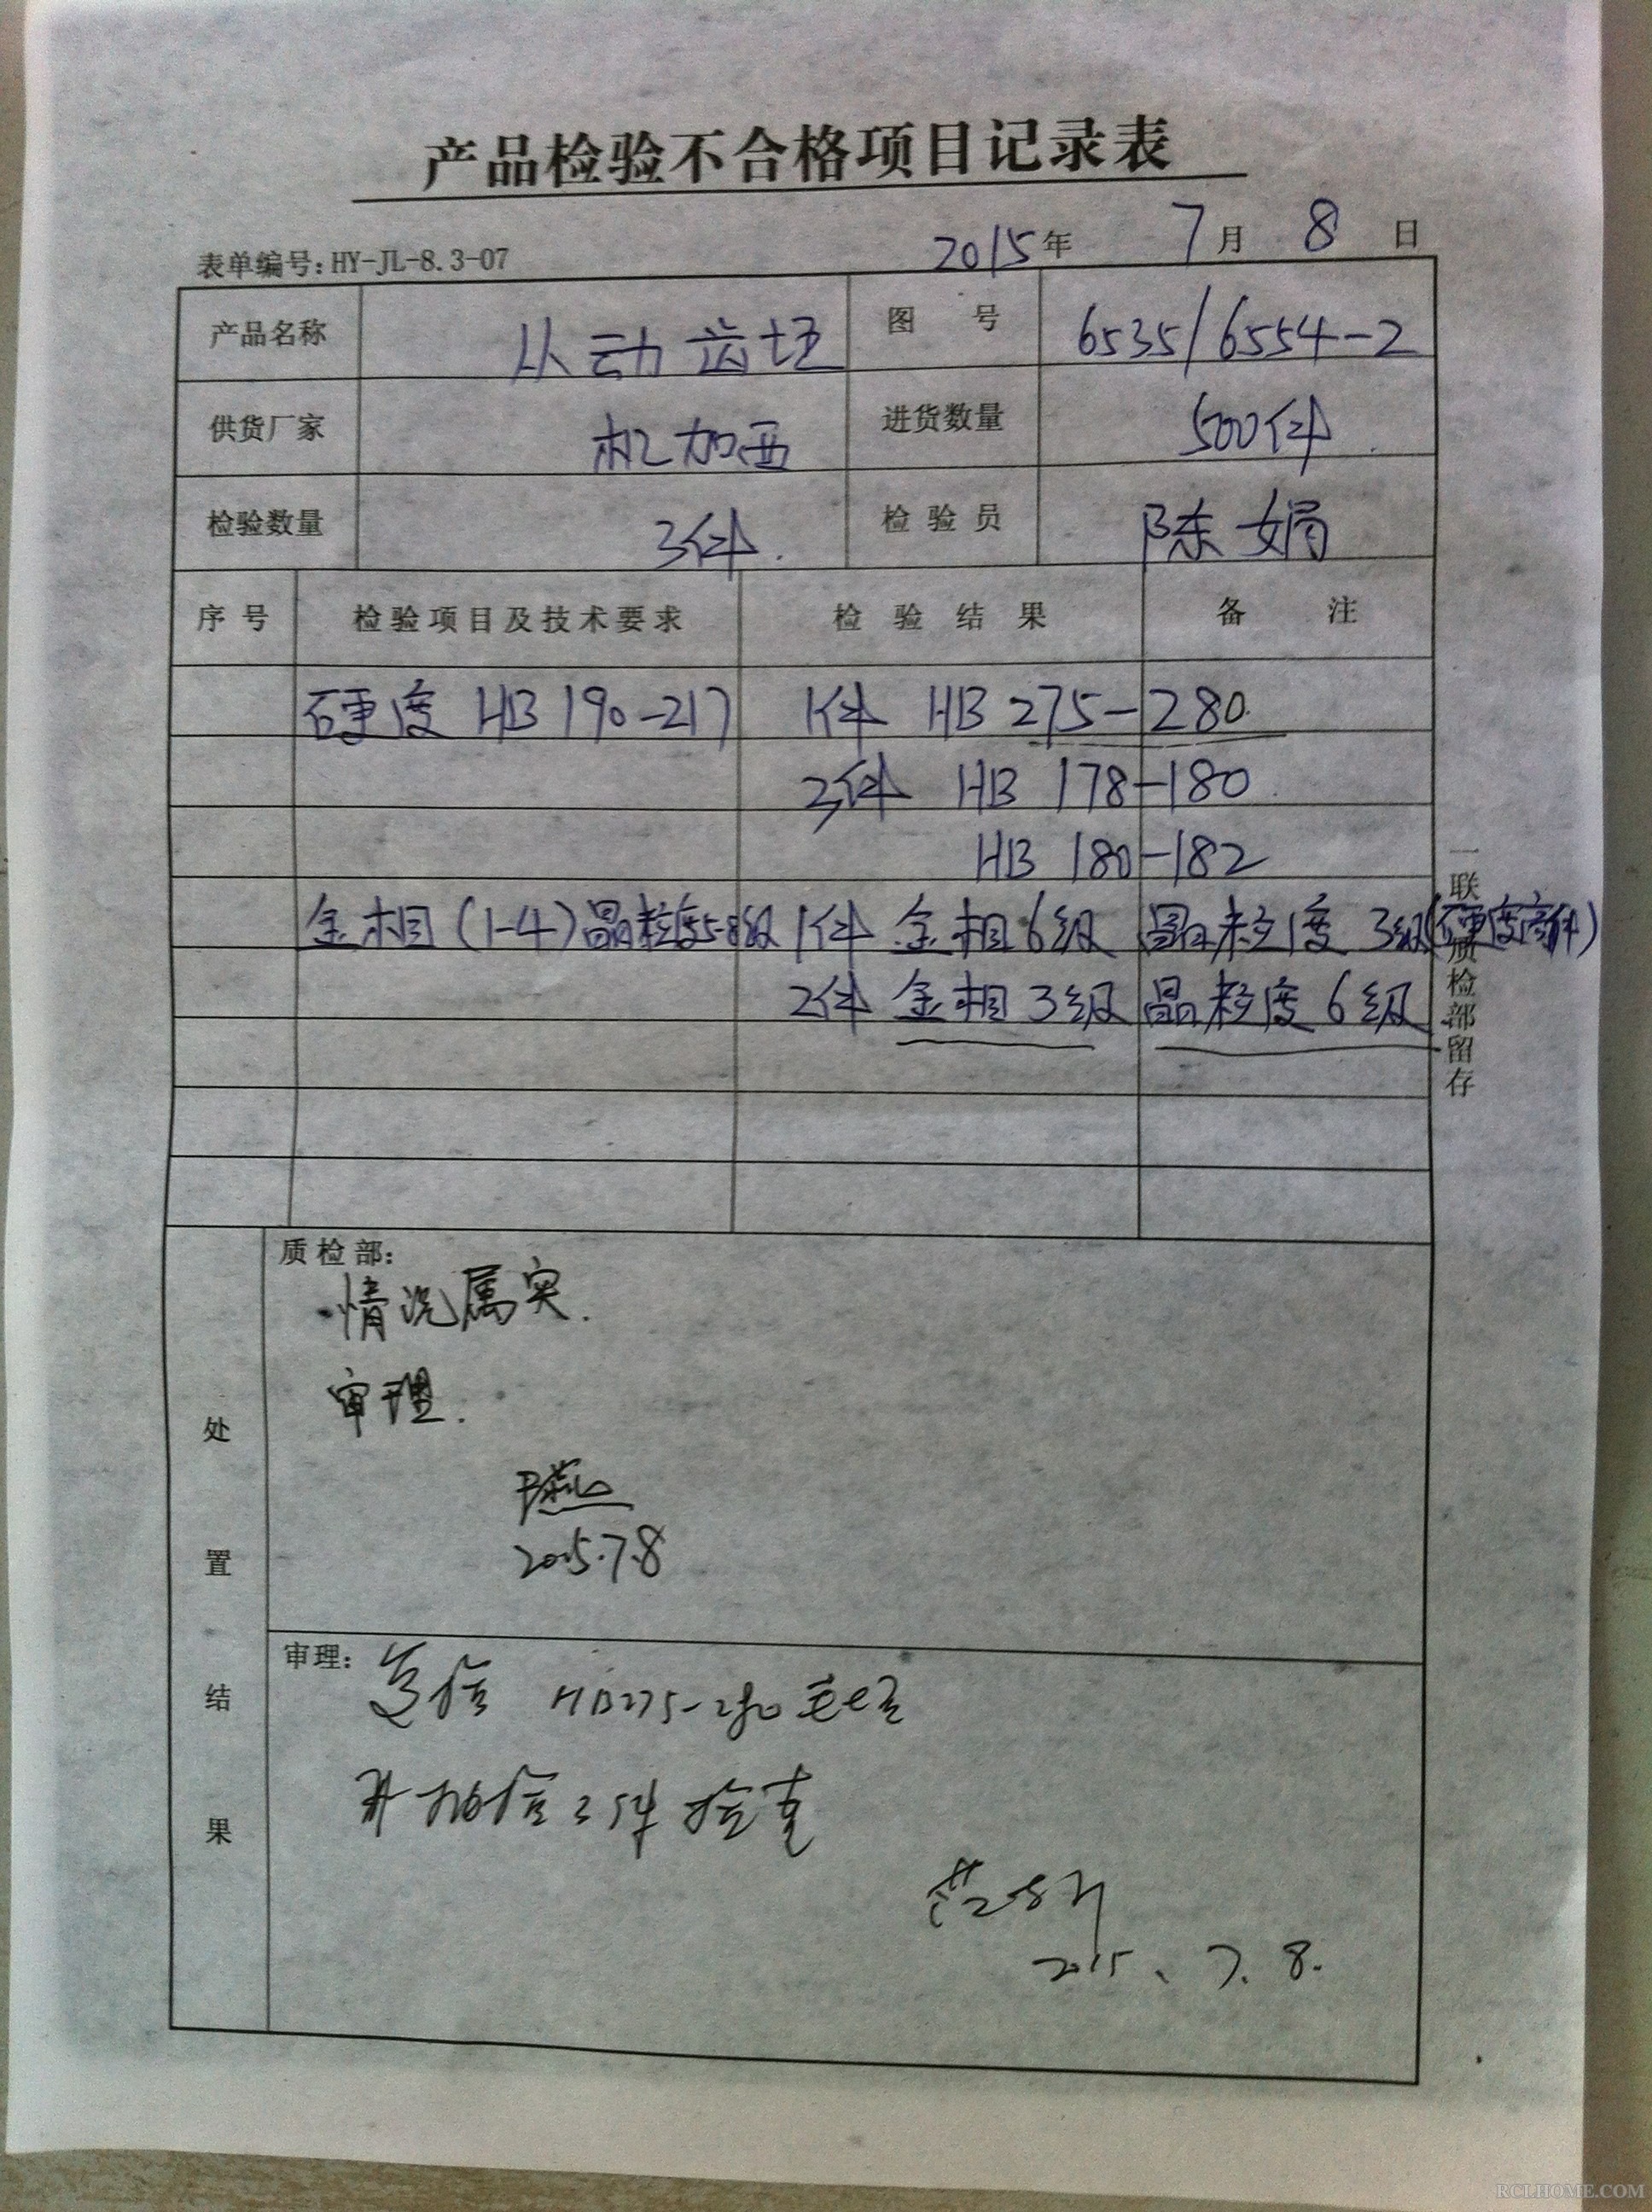 产品检验不合格项目记录表
表单编号:HY-JL-8.3-07 2015年 7月 8日
产品名称 从动齿坯 图号 6535/6554-2
供货厂家 机加西 进货数量 500件
检验数量 3件. 检验员 陈娟
序号 检验项目及技术要求 检验结果 备注
硬度 HB 190-217 1件 HB 275-280.
2件 HB 178-180.
HB 180-182
金相(1-4)晶粒度5-8级 1件 金相6级 晶粒度 3级(硬度高件)
2件 金相3级 晶粒度6级
一联质检部留存
处置结果
质检部:
情况属实.
审理.
2015.7.8
审理: HB275-280毛坯
并抽 3件检查
2015、7.8.
RCLHOME.COM